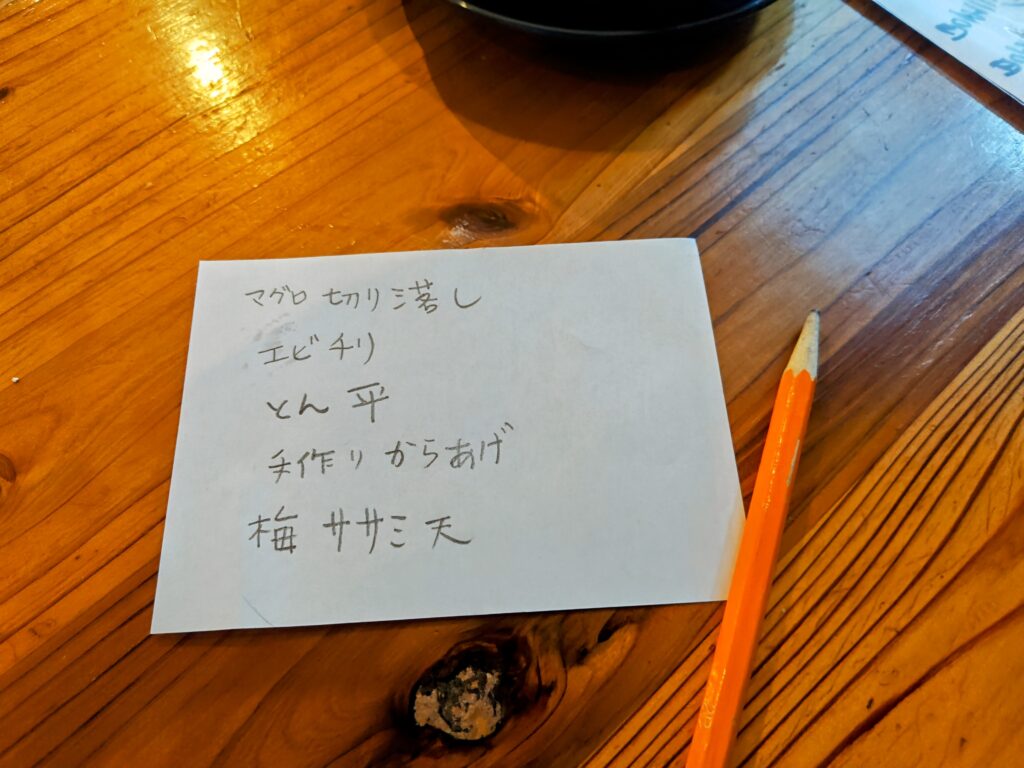 マグロ 切り落し
エビチリ
とん平
手作り からあげ
梅 ササミ天